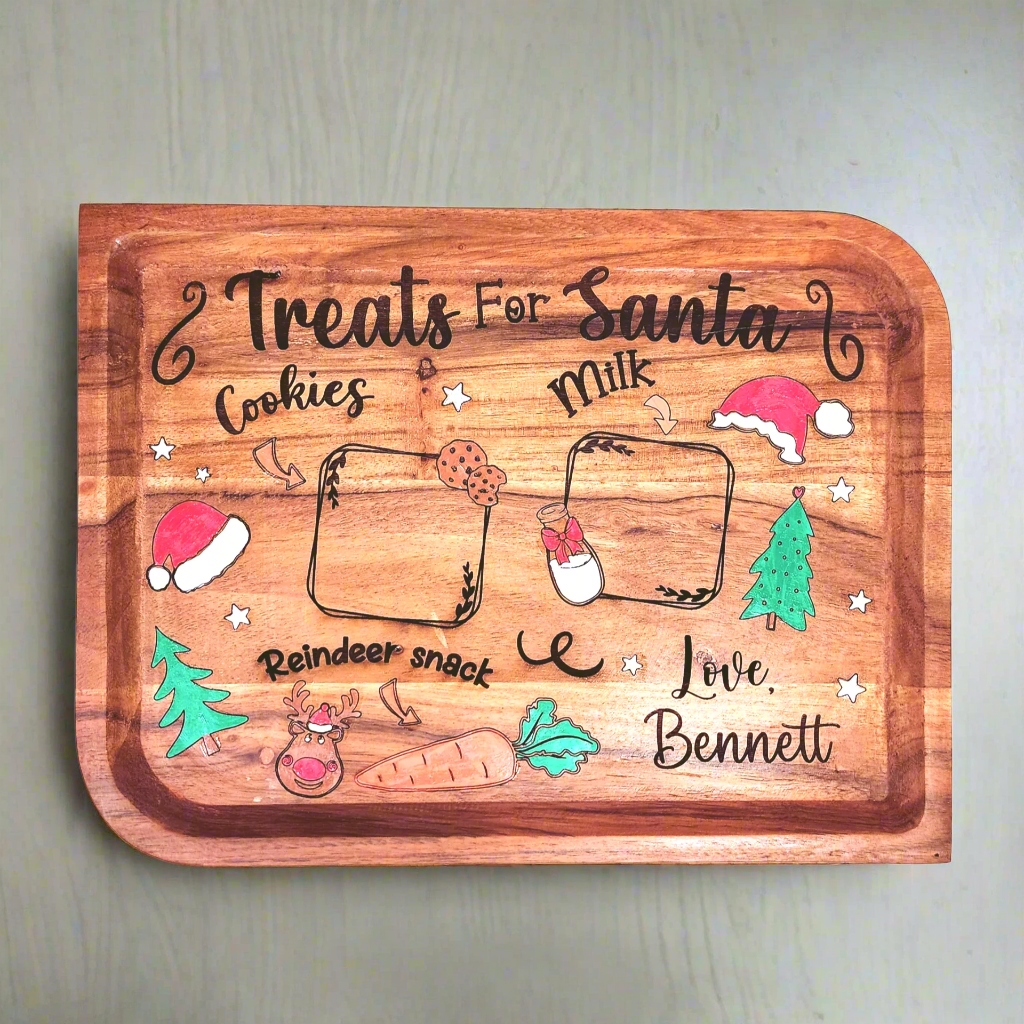 Treats For Santa
Cookies
Milk
Reindeer snack
Love,
Bennett